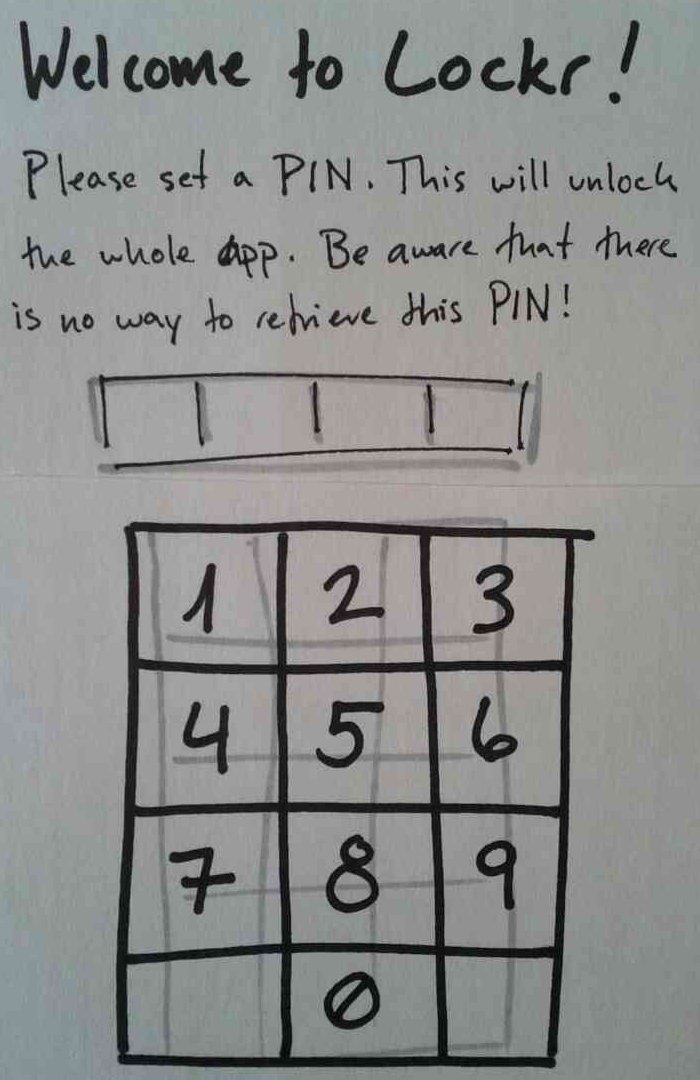 Welcome to Lockr!
Please set a PIN. This will unlock
the whole App. Be aware that there
is no way to retrieve this PIN!
1 2 3
4 5 6
7 8 9
0